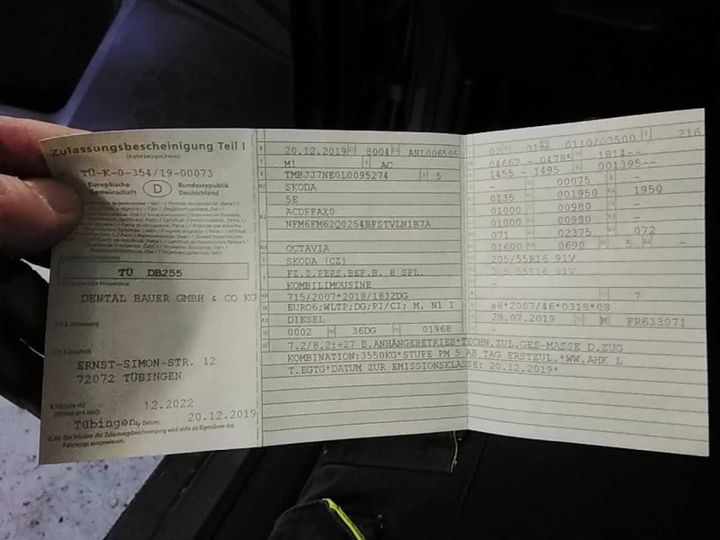 Zulassungsbescheinigung Teil I
(Fahrzeugschein)
TÜ-K-0-354/19-00073
Europäische Gemeinschaft
D
Bundesrepublik Deutschland
TÜ DB255
DENTAL BAUER GMBH & CO KG
ERNST-SIMON-STR. 12
72072 TÜBINGEN
12.2022
Tübingen,
20.12.2019
20.12.2019 8004 ANL006505
M1 AC
TMBJJ7NE0L0095274 5
SKODA
5E
ACDFFAX0
NFM6FM62Q0254BFSTVLN1B7A
OCTAVIA
SKODA (CZ)
FZ.Z.PERS.BEF.B. 8 SPL.
KOMBILIMOUSINE
715/2007*2018/1832DG
EURO6;WLTP;DG;PI/CI; M, N1 I
DIESEL
0002 36DG 01968
7.2/8.2:+27 B.ANHÄNGEBETRIEB*TECHN.ZUL.GES-MASSE D.ZUG
KOMBINATION:3550KG*STUFE PM 5 AB TAG ERSTZUL.*WW.AHK L
T.EGTG*DATUM ZUR EMISSIONSKLASSE: 20.12.2019*
02 01 0110/03500 216
04667 - 04785 1814--
1455 - 1495 001395--
- 00075 -
0135 001950 1950
01000 00980 -
01000 00980 -
071 02375 072
01600 0690 5 -
205/55R16 91V
205/55R16 91V
-
- 7
e8*2007/46*0318*08
29.07.2019 M FR633071